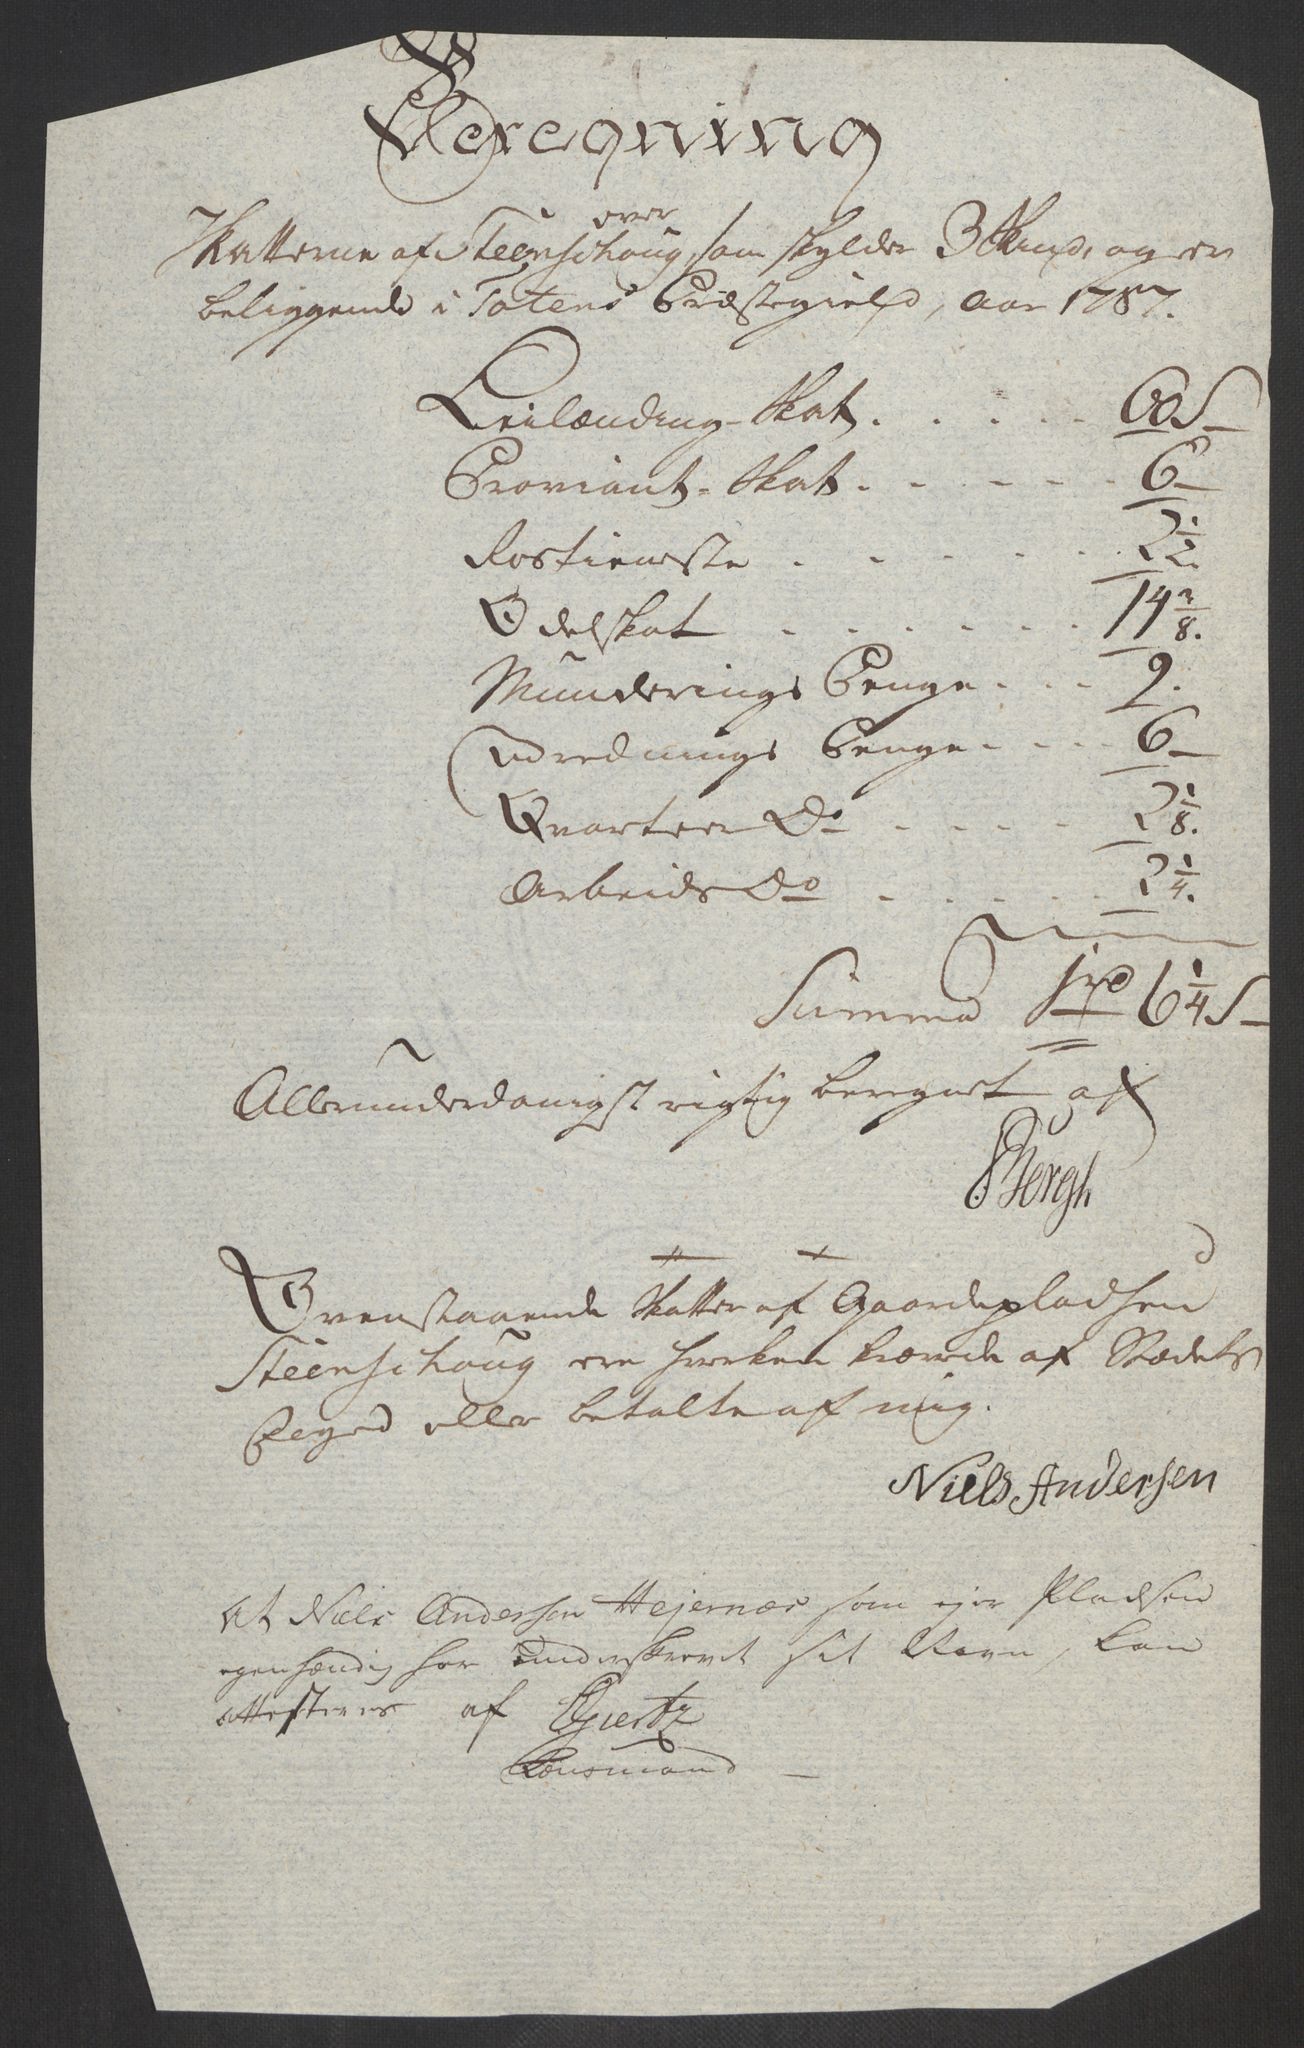 Beregning
over
Skatterne af Steenschoug, som skylder 3 Skind, og er
beliggende i Totens Præstegield, Aar 1787.
Leilænding-Skat. . . . . . 60 S
Proviant-Skat. . . . . . 6
Rostieneste . . . . . . 2 1/2.
Odelskat . . . . . . 14 3/8.
Munderings Penge. . . . 9.
Udrednings Penge. . . . 6
Qvarteer Do . . . . 2 1/8.
Arbeids Do . . . . . 2 1/4.
Summa 1 rd 6 1/4 S
Allerunderdanigst rigtig beregnet af
Bergh
Ovenstaaende Skatter af Gaardepladsen
Steenschoug ere hverken krævede af Stædets
Foged eller betalte af mig.
Niels Andersen
At Niels Andersen Hejernæs som ejer Pladsen
egenhændig har underskrevet sit Navn, kan
attesteres af Gjertz
Lænsmand